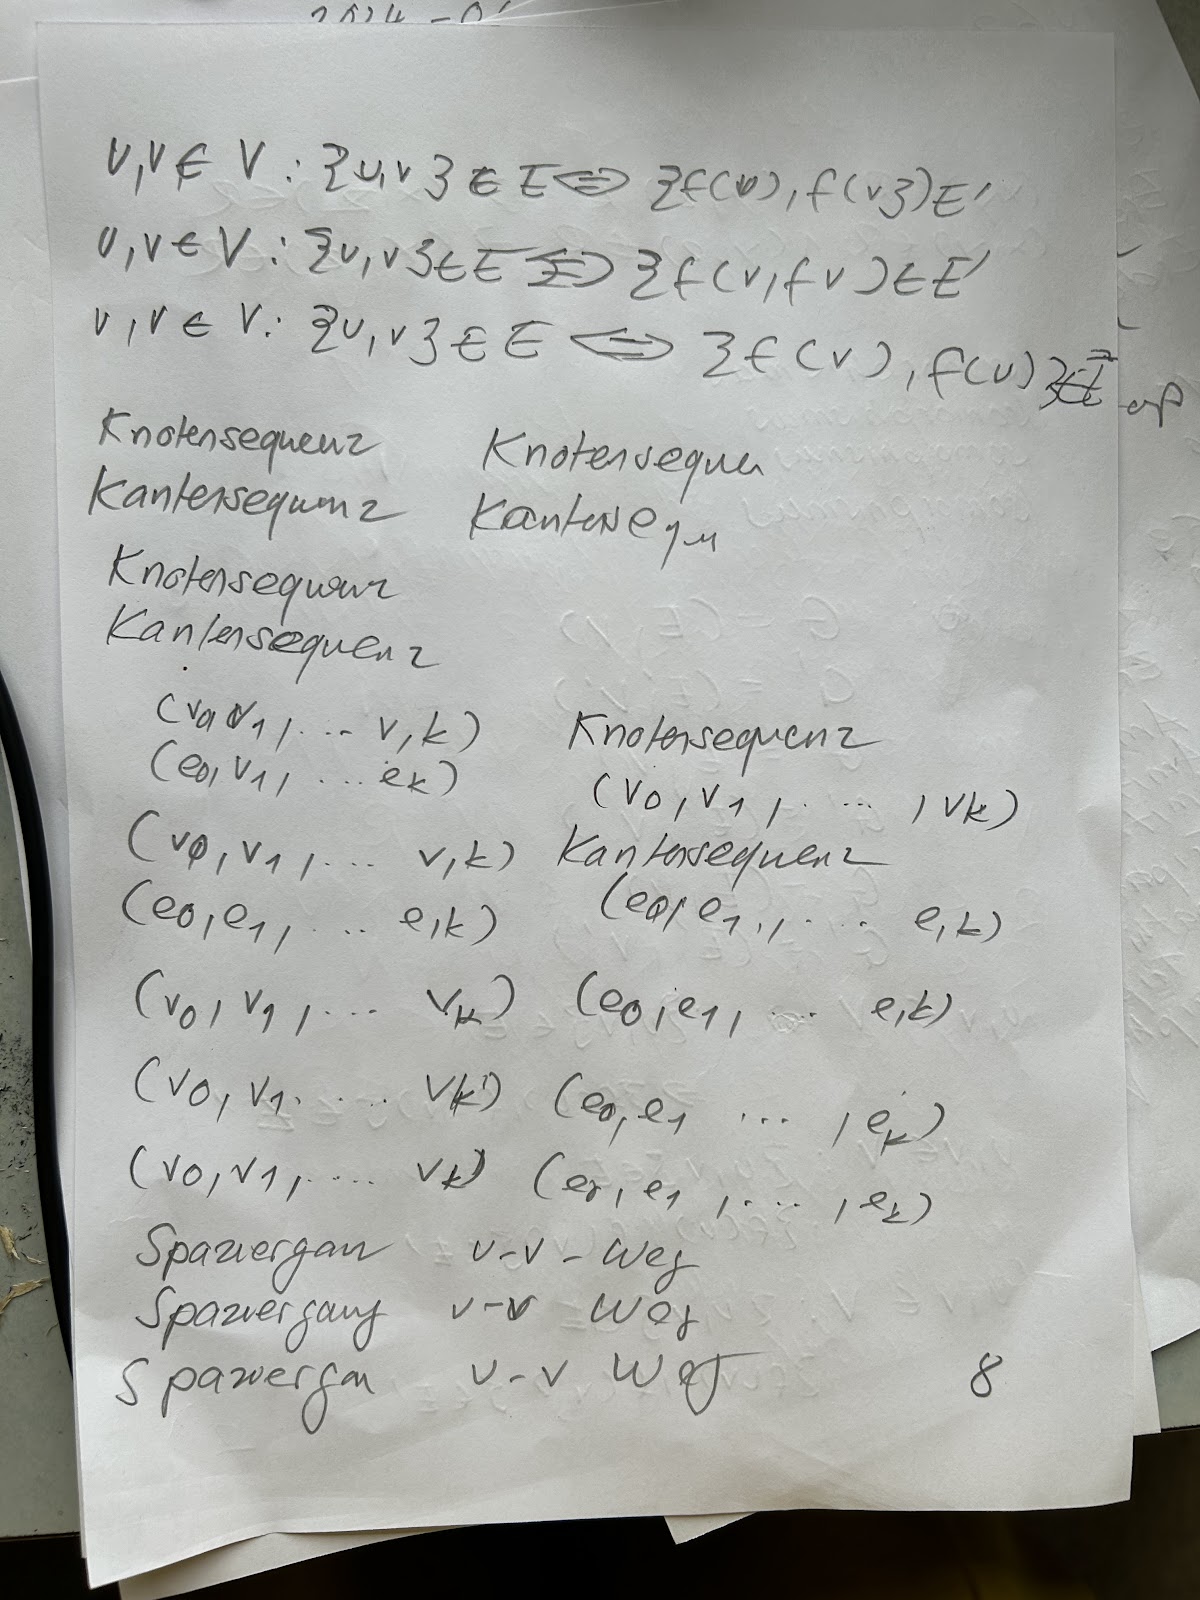 u,v ∈ V : {u,v} ∈ E ⇔ {f(u), f(v})E'
u,v ∈ V : {u,v}∈E ⇔ {f(v,fv)∈E'
v,v ∈ V: {u,v}∈E ⇔ {f(v),f(u)}∈
Knotensequenz Knotensequen
Kantensequenz Kantensequ
Knotensequenz
Kantensequenz
(v0 v1,... v,k) Knotensequenz
(e0,v1, ...ek) (v0,v1,. ... ,vk)
(v0,v1,... v,k) Kantensequenz
(e0,e1, ... e,k) (e0,e1.,... e,k)
(v0,v1,... vk) (e0,e1,... e,k)
(v0,v1.... vk) (e0,e1 ... ,ek)
(v0,v1,.... vk) (e0,e1,...,ek)
Spaziergan u-v-Weg
Spaziergang v-v Weg
Spaziergan u-v Weg 8